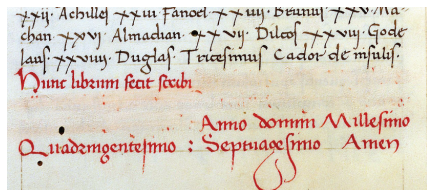 xxii. Achilles xxiii. Fanoel. xxiiii. Brunus. xxv. Ma-
chan. xxvi. Almadian. xxvii. Dilcos. xxviii. Gode
laus. xxviiii. Duglas. Tricesimus Cador de insulis.
Hunc librum fecit scribi
Anno domini Millesimo
Quadringentesimo : Septuagesimo Amen